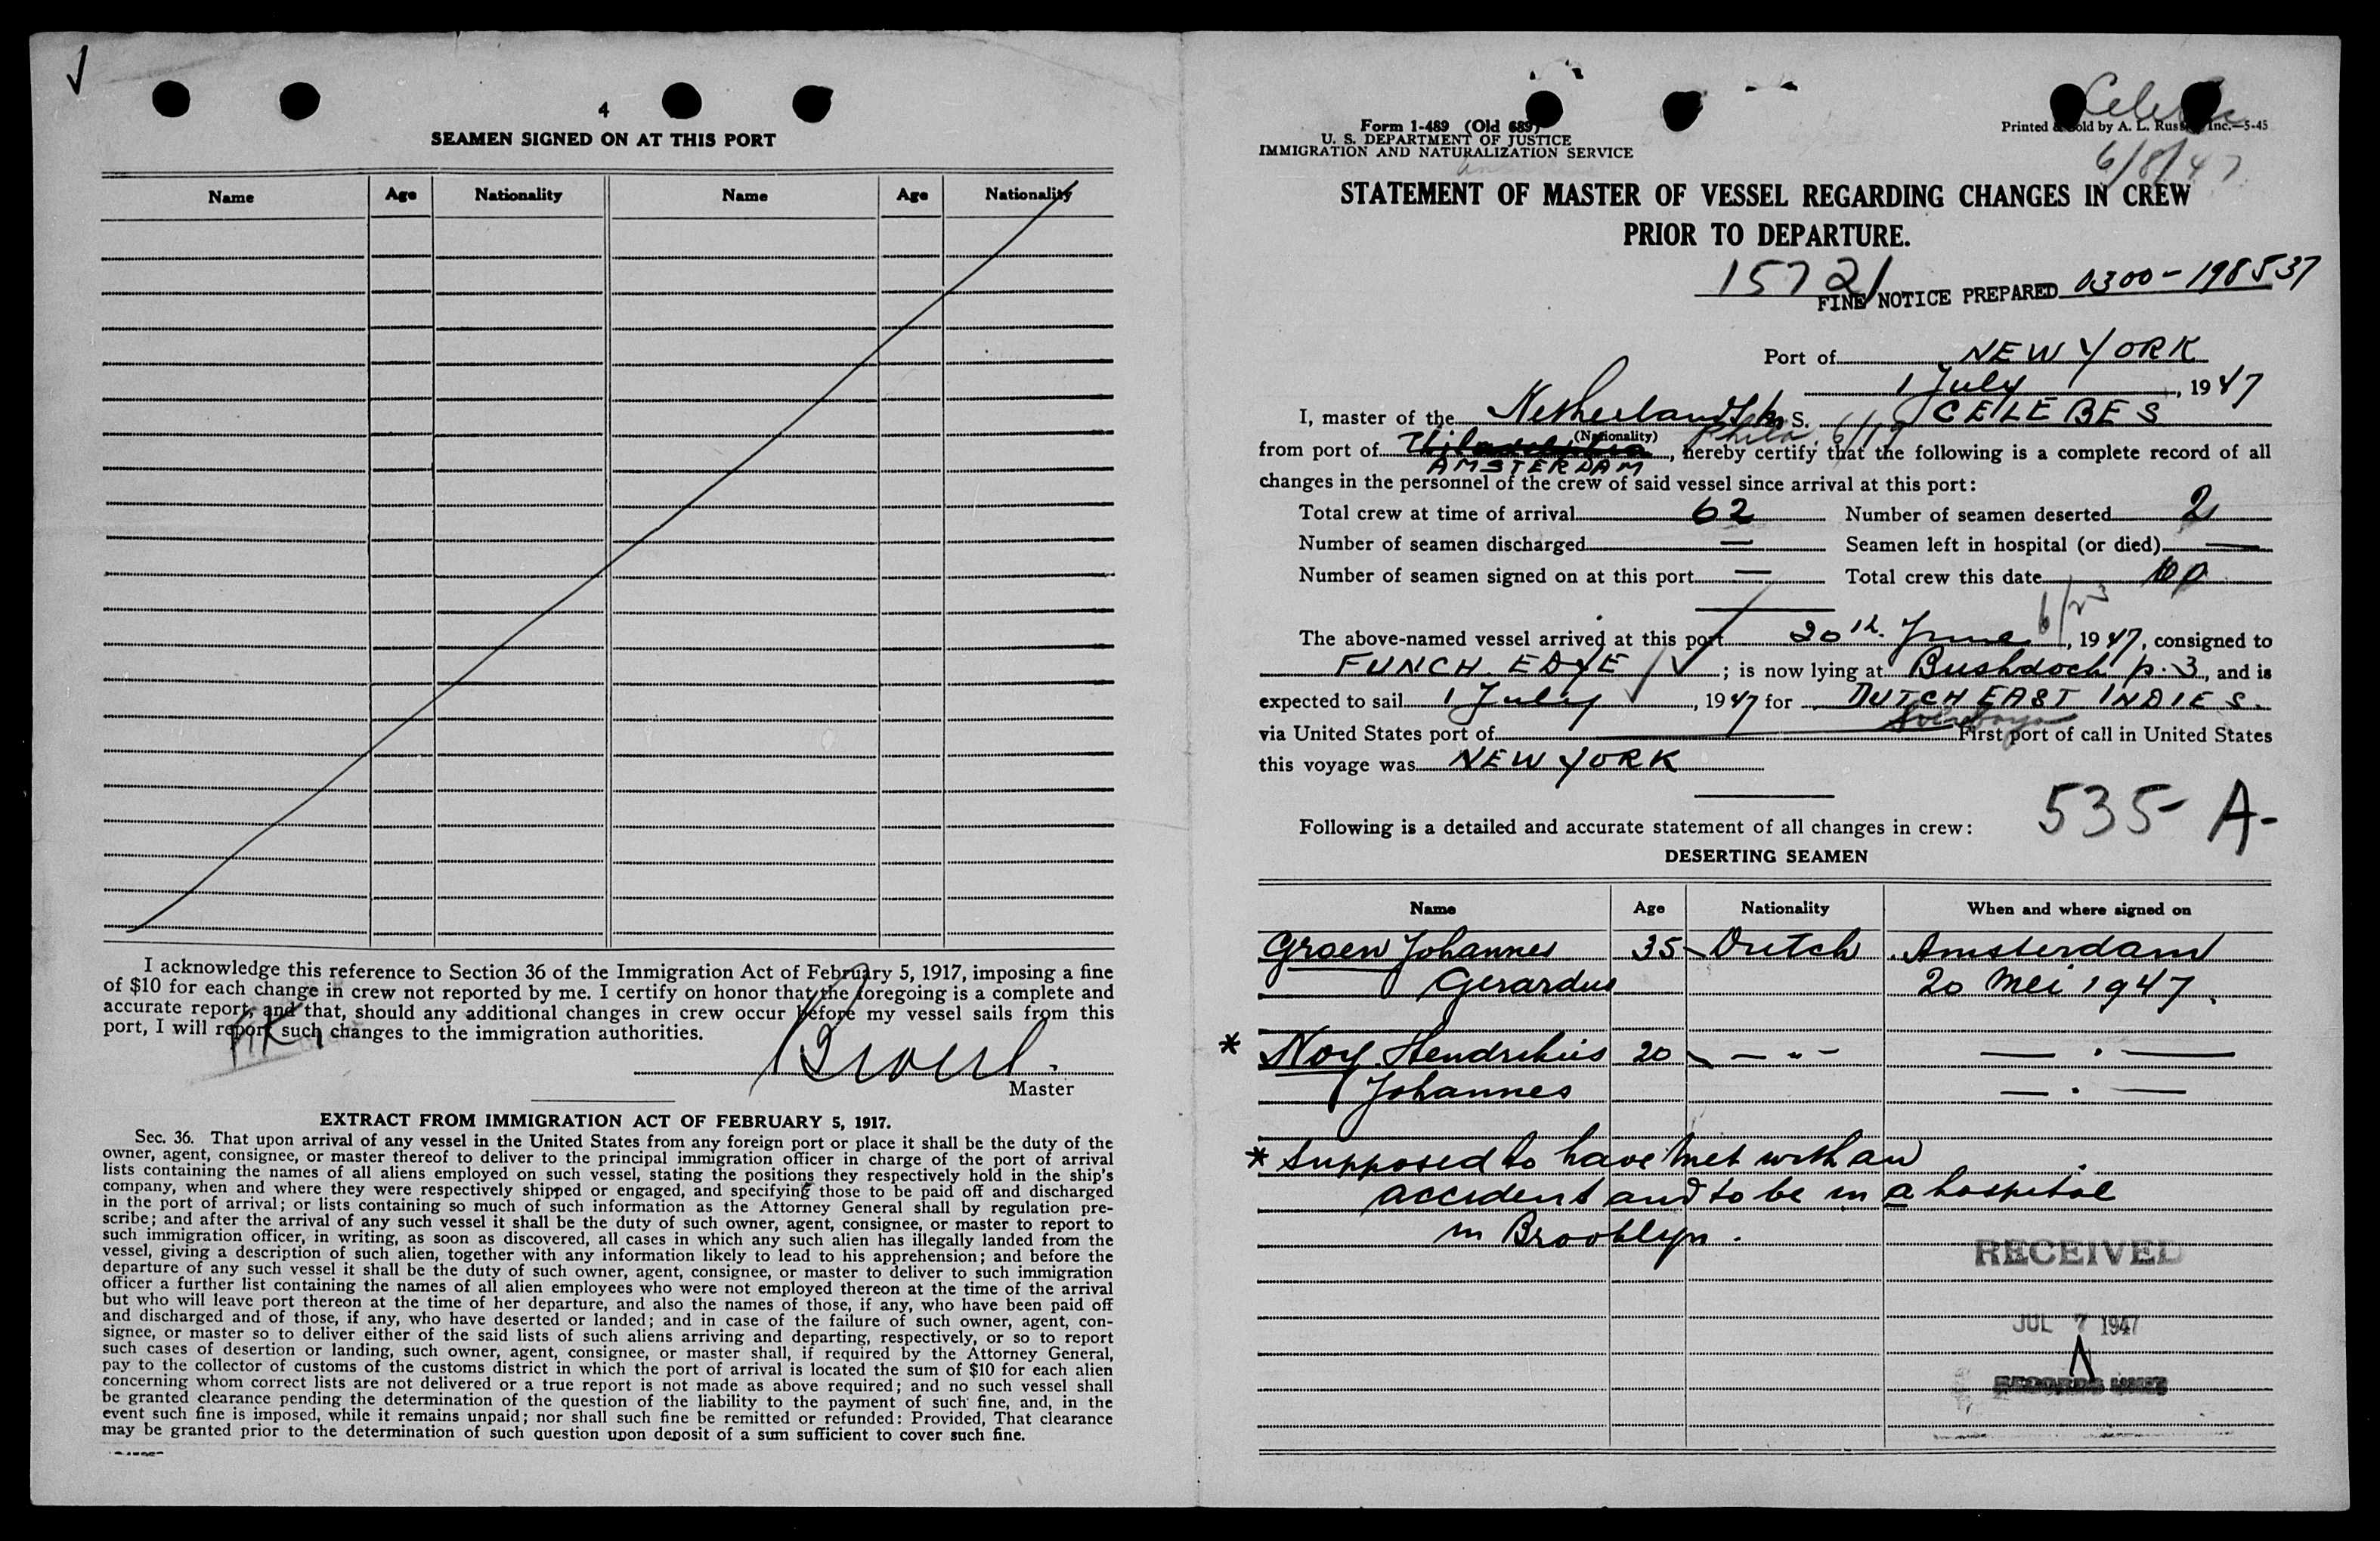 4
SEAMEN SIGNED ON AT THIS PORT
Name Age Nationality Name Age Nationality
I acknowledge this reference to Section 36 of the Immigration Act of February 5, 1917, imposing a fine
of $10 for each change in crew not reported by me. I certify on honor that the foregoing is a complete and
accurate report, and that, should any additional changes in crew occur before my vessel sails from this
port, I will report such changes to the immigration authorities.
Master
EXTRACT FROM IMMIGRATION ACT OF FEBRUARY 5, 1917.
Sec. 36. That upon arrival of any vessel in the United States from any foreign port or place it shall be the duty of the
owner, agent, consignee, or master thereof to deliver to the principal immigration officer in charge of the port of arrival
lists containing the names of all aliens employed on such vessel, stating the positions they respectively hold in the ship's
company, when and where they were respectively shipped or engaged, and specifying those to be paid off and discharged
in the port of arrival; or lists containing so much of such information as the Attorney General shall by regulation pre-
scribe; and after the arrival of any such vessel it shall be the duty of such owner, agent, consignee, or master to report to
such immigration officer, in writing, as soon as discovered, all cases in which any such alien has illegally landed from the
vessel, giving a description of such alien, together with any information likely to lead to his apprehension; and before the
departure of any such vessel it shall be the duty of such owner, agent, consignee, or master to deliver to such immigration
officer a further list containing the names of all alien employees who were not employed thereon at the time of the arrival
but who will leave port thereon at the time of her departure, and also the names of those, if any, who have been paid off
and discharged and of those, if any, who have deserted or landed; and in case of the failure of such owner, agent, con-
signee, or master so to deliver either of the said lists of such aliens arriving and departing, respectively, or so to report
such cases of desertion or landing, such owner, agent, consignee, or master shall, if required by the Attorney General,
pay to the collector of customs of the customs district in which the port of arrival is located the sum of $10 for each alien
concerning whom correct lists are not delivered or a true report is not made as above required; and no such vessel shall
be granted clearance pending the determination of the question of the liability to the payment of such fine, and, in the
event such fine is imposed, while it remains unpaid; nor shall such fine be remitted or refunded: Provided, That clearance
may be granted prior to the determination of such question upon deposit of a sum sufficient to cover such fine.
Celebes
Form I-489 (Old 689)
Printed & Sold by A. L. Russell, Inc.—5-45
U. S. DEPARTMENT OF JUSTICE
IMMIGRATION AND NATURALIZATION SERVICE
6/8/47
STATEMENT OF MASTER OF VESSEL REGARDING CHANGES IN CREW
PRIOR TO DEPARTURE.
15721
FINE NOTICE PREPARED 0300-198537
Port of NEW YORK
1 July, 1947
I, master of the Netherlands M. S. CELEBES
(Nationality) Phila. 6/19
from port of Philadelphia, hereby certify that the following is a complete record of all
AMSTERDAM
changes in the personnel of the crew of said vessel since arrival at this port:
Total crew at time of arrival 62 Number of seamen deserted 2
Number of seamen discharged — Seamen left in hospital (or died) —
Number of seamen signed on at this port — Total crew this date 60
6/23
The above-named vessel arrived at this port 20th. June, 1947, consigned to
FUNCH. EDYE; is now lying at Bushdock p. 3, and is
expected to sail 1 July, 1947 for DUTCH EAST INDIES.
Soerabaya
via United States port of First port of call in United States
this voyage was NEW YORK
535- A-
Following is a detailed and accurate statement of all changes in crew:
DESERTING SEAMEN
Name Age Nationality When and where signed on
Groen Johannes 35 Dutch Amsterdam
Gerardus 20 Mei 1947
* Noy. Hendrikus 20 - " - — " —
Johannes — " —
* Supposed to have met with an
accident and to be in a hospital
in Brooklyn.
RECEIVED
JUL 7 1947
RECORDS UNIT